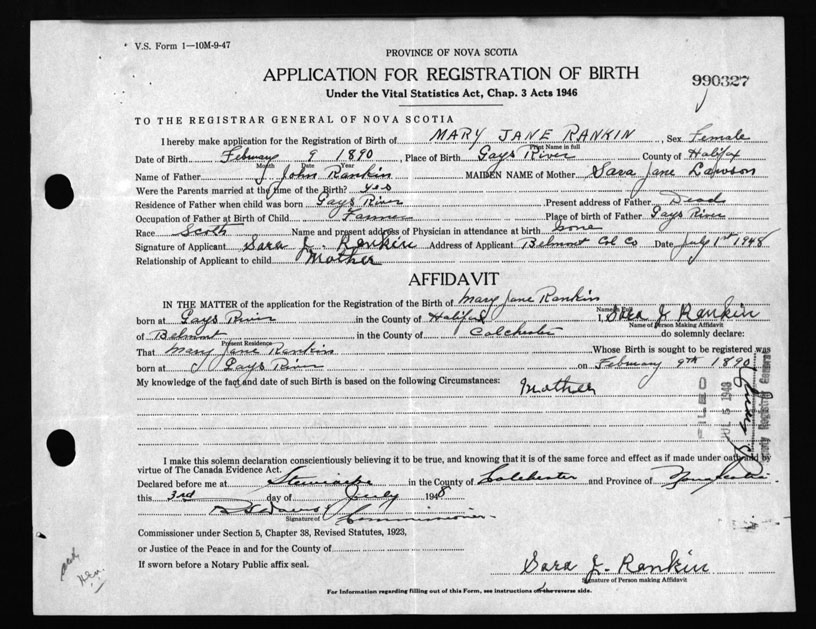 V.S. Form 1—10M-9-47
PROVINCE OF NOVA SCOTIA
APPLICATION FOR REGISTRATION OF BIRTH
990327
Under the Vital Statistics Act, Chap. 3 Acts 1946
TO THE REGISTRAR GENERAL OF NOVA SCOTIA
I hereby make application for the Registration of Birth of MARY JANE RANKIN, Sex Female
Print Name in full
Date of Birth February 9 1890, Place of Birth Gays River County of Halifax
Date Year
Name of Father J John Rankin MAIDEN NAME of Mother Sara Jane Lawson
Were the Parents married at the time of the Birth? yes
Residence of Father when child was born Gays River Present address of Father Dead
Occupation of Father at Birth of Child Farmer Place of birth of Father Gays River
Race Scotch Name and present address of Physician in attendance at birth none
Signature of Applicant Sara J. Rankin Address of Applicant Belmont Col Co Date July 1st 1948
Relationship of Applicant to child Mother
AFFIDAVIT
IN THE MATTER of the application for the Registration of the Birth of Mary Jane Rankin
born at Gays River in the County of Halifax I, Sara J Rankin
Name in Full
Name of Person Making Affidavit
of Belmont in the County of Colchester do solemnly declare:
Present Residence
That Mary Jane Rankin Whose Birth is sought to be registered was
born at Gays River on February 9th 1890
My knowledge of the fact and date of such Birth is based on the following Circumstances: Mother
FILED
JUL 5 1948
Deputy Registrar General
I make this solemn declaration conscientiously believing it to be true, and knowing that it is of the same force and effect as if made under oath and by
virtue of The Canada Evidence Act.
Declared before me at Stewiacke in the County of Colchester and Province of Nova Scotia
this 3rd day of July 1948
Signature of Commissioner
Commissioner under Section 5, Chapter 38, Revised Statutes, 1923,
or Justice of the Peace in and for the County of
If sworn before a Notary Public affix seal.
Sara J. Rankin
Signature of Person making Affidavit
For Information regarding filling out of this Form, see instructions on the reverse side.